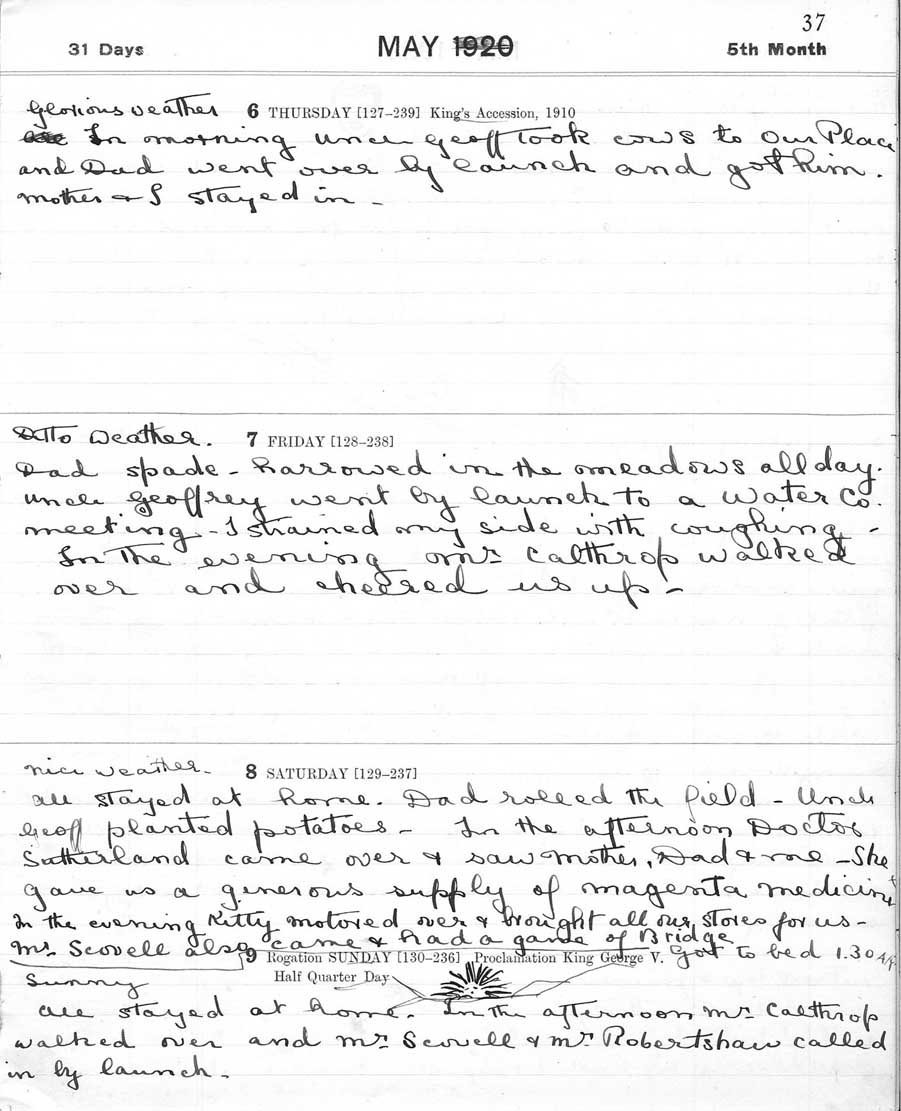 37
31 Days MAY 1920 5th Month
Glorious weather 6 THURSDAY [127–239] King's Accession, 1910
In morning Uncle Geoff took cows to Our Place
and Dad went over by launch and got him.
Mother & I stayed in -
Ditto Weather. 7 FRIDAY [128–238]
Dad spade-harrowed in the meadows all day.
Uncle Geoffrey went by launch to a Water Co.
meeting - I strained my side with coughing -
In the evening Mr. Calthrop walked
over and cheered us up -
Nice weather - 8 SATURDAY [129–237]
All stayed at home. Dad rolled the field - Uncle
Geoff planted potatoes - In the afternoon Doctor
Sutherland came over & saw Mother, Dad & me - She
gave us a generous supply of magenta medicine
In the evening Kitty motored over & brought all our stores for us -
Mr. Scovell also came & had a game of Bridge
9 Rogation SUNDAY [130–236] Proclamation King George V. Got to bed 1.30
Half Quarter Day
Sunny
All stayed at home. In the afternoon Mr. Calthrop
walked over and Mr. Scovell & Mr. Robertshaw called
in by launch.